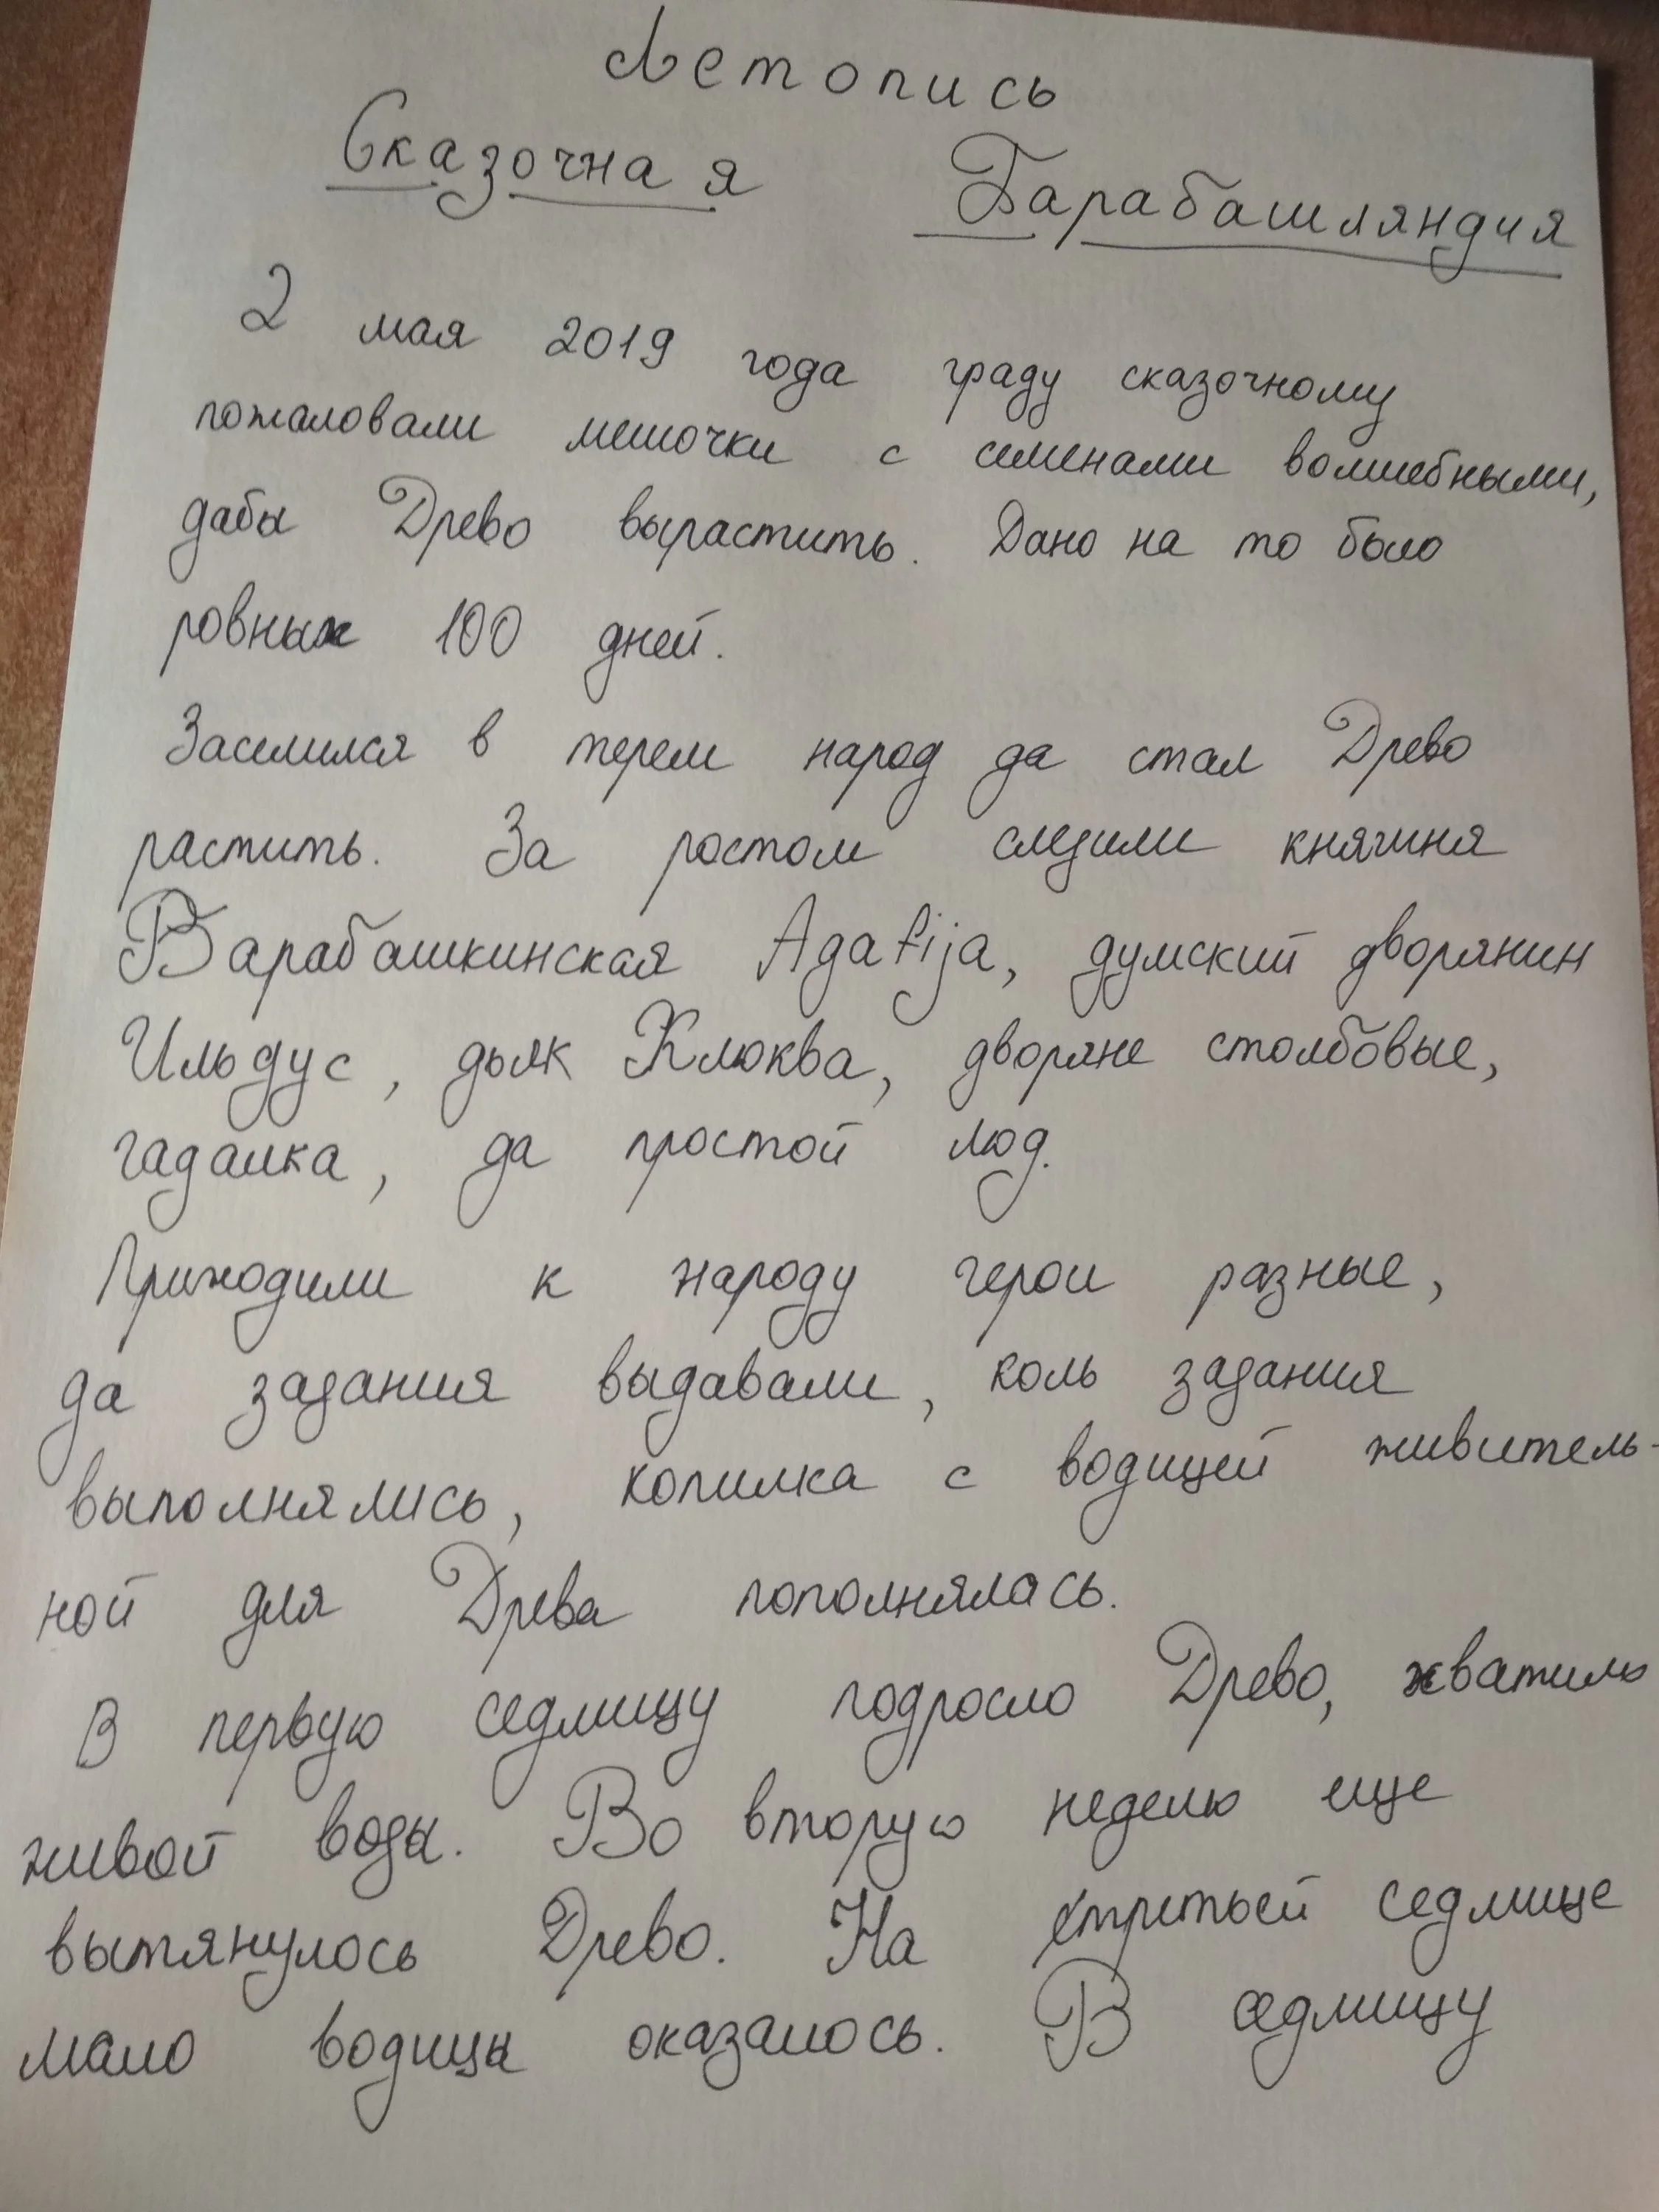 Летопись
Сказочная Барабашляндия
2 мая 2019 года граду сказочному
пожаловали мешочки с семенами волшебными,
дабы Древо вырастить. Дано на то было
ровных 100 дней.
Заселился в терем народ да стал Древо
растить. За ростом следили княгиня
Варабашкинская Agafija, думский дворянин
Ильдус, дьяк Клюква, дворяне столбовые,
гадалка, да простой люд.
Приходили к народу герои разные,
да задания выдавали, коль задания
выполнялись, копилка с водицей живитель-
ной для Древа пополнялась.
В первую седмицу подросло Древо, хватило
живой воды. Во вторую неделю еще
вытянулось Древо. На третьей седмице
мало водицы оказалось. В седмицу